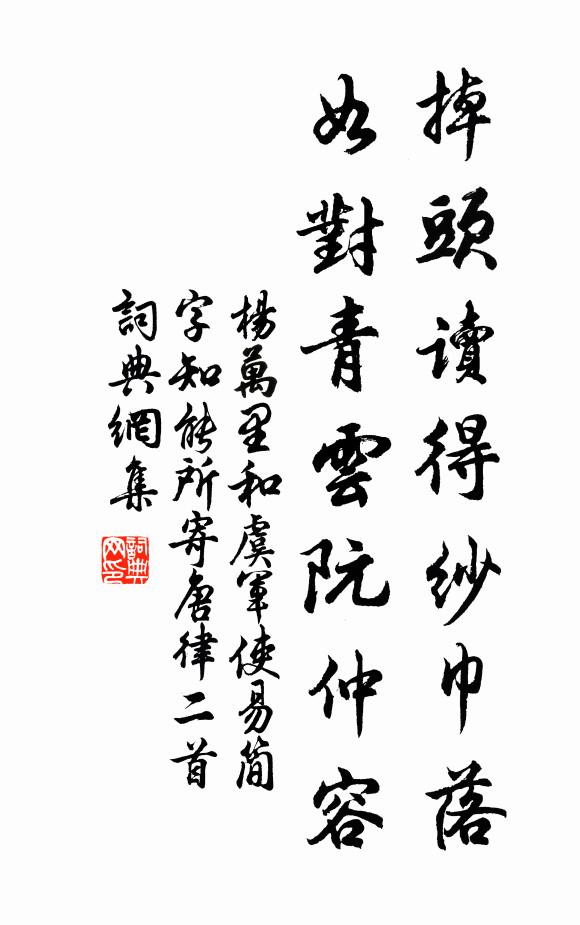 掉頭讀得紗巾落
如對青雲阮仲容
楊萬里和虞軍使易簡
字知能所寄唐律二首
詞典網集
詞典
网印